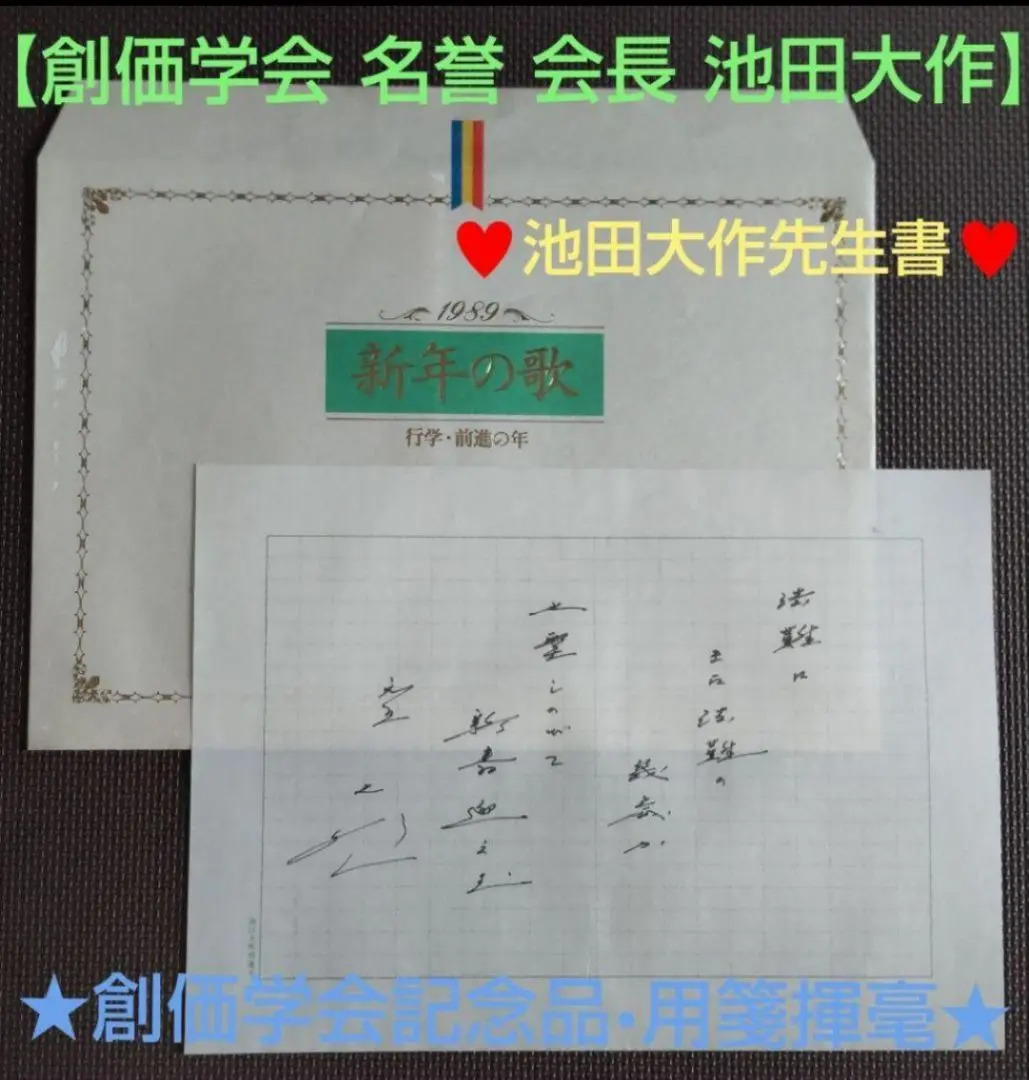 【創価学会 名誉 会長 池田大作】
♥池田大作先生書♥
1989
新年の歌
行学・前進の年
法難に
また法難の
幾春か
しのぎて
新春迎えむ
元旦
★創価学会記念品・用箋揮毫★